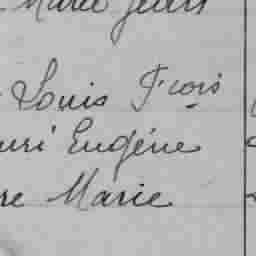 Marie Jean
Louis Fçois
uri Eugéne
re Marie